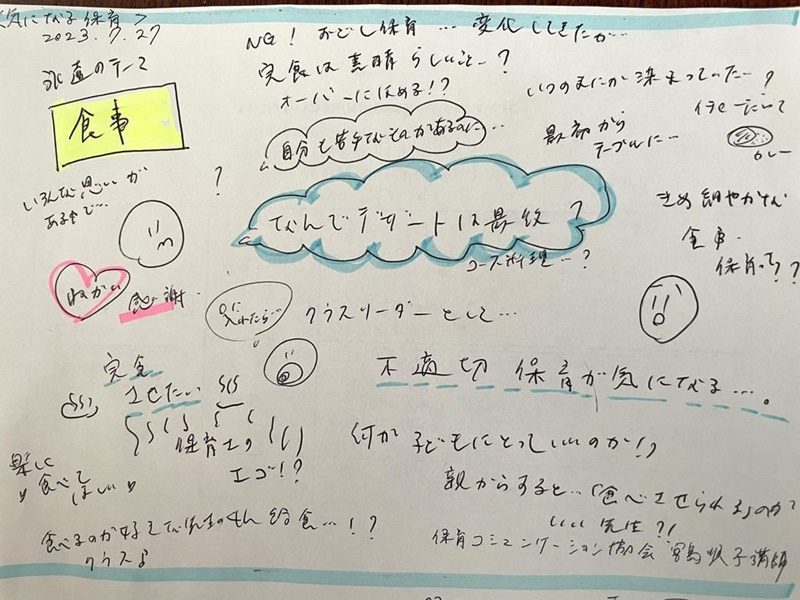 気になる保育>
2023.7.27
永遠のテーマ
食事
NG! おどし保育… 変化してきたが…
完食は素晴らしいこと…?
オーバーにほめる!?
自分も苦手なものがあるのに…
いつのまにか染まっていた…?
最初から
テーブルに…
カレー
いろんな思いが
あるから…
?
なんでデザートは最後?
コース料理…?
きめ細やかな
食事
保育って??
ねがい
感謝
口に
入れたら…
クラスリーダーとして…
完食
させたい
保育士の
エゴ!?
不適切保育が気になる…。
何が子どもにとっていいのか!?
楽しく
食べて
ほしい
親からすると…「食べさせられる」のが?
いい先生?!
食べるのが好きな先生の
給食…!?
クラス♪
保育コミュニケーション協会 講師